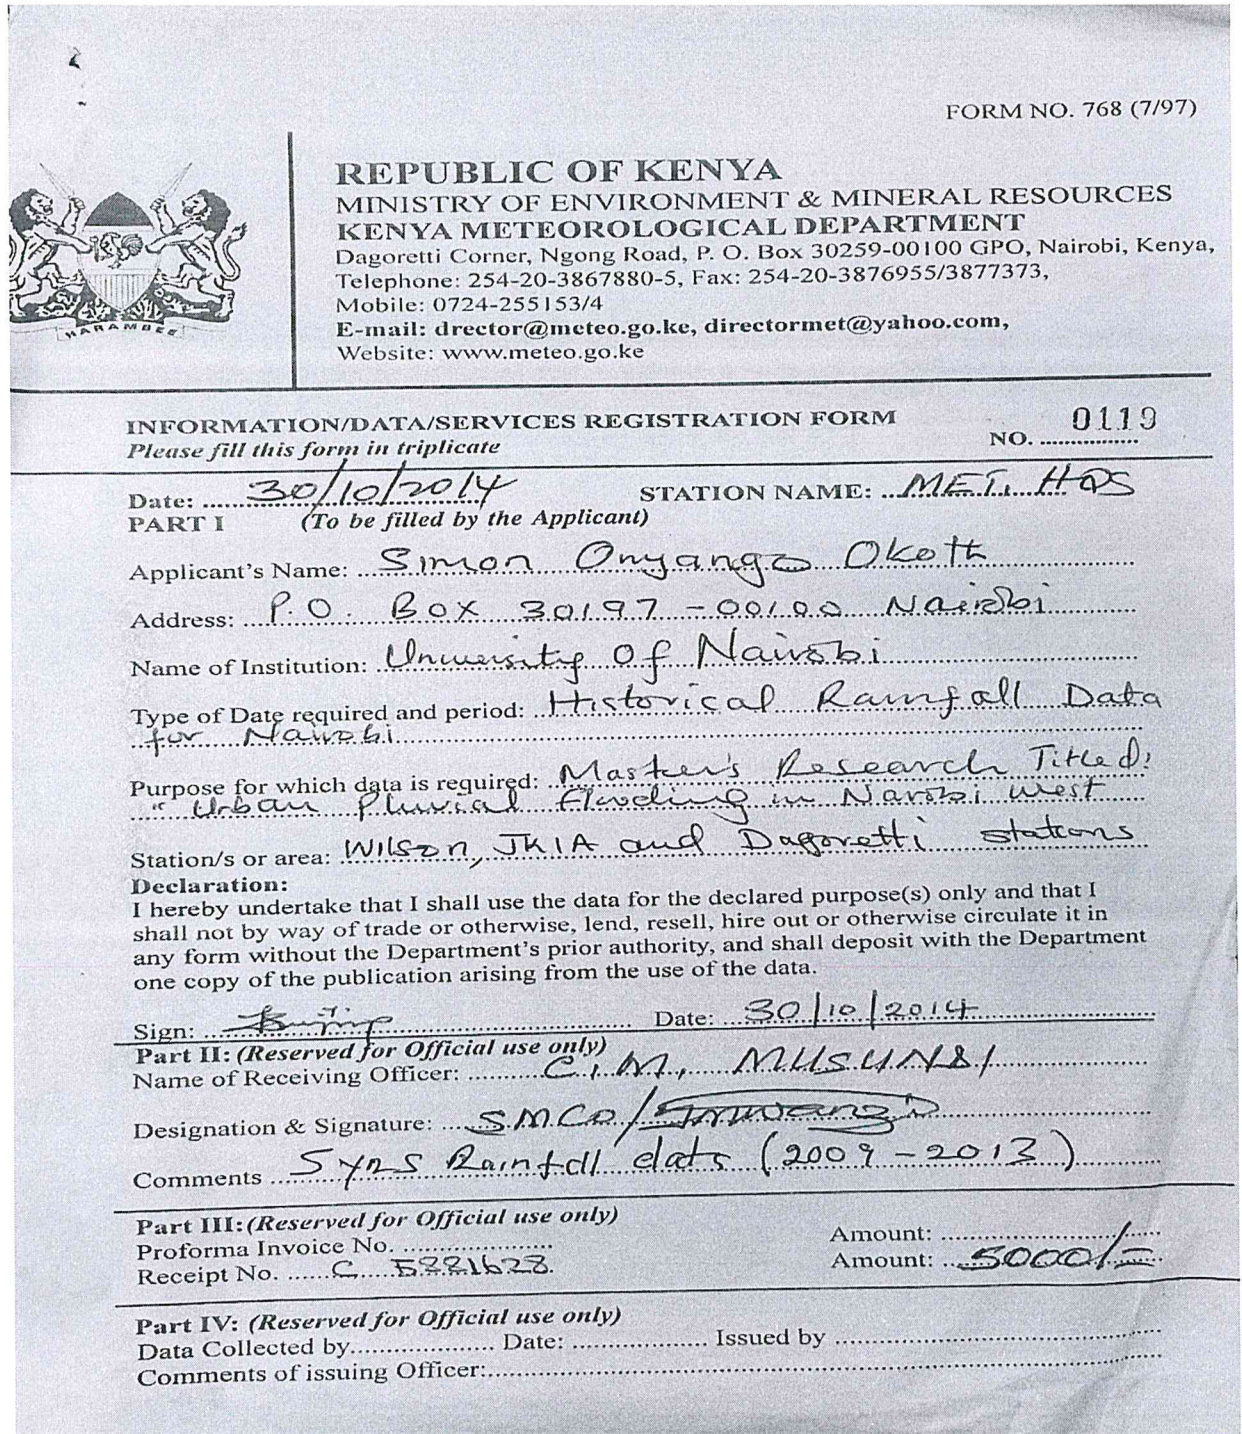 FORM NO. 768 (7/97)
REPUBLIC OF KENYA
MINISTRY OF ENVIRONMENT & MINERAL RESOURCES
KENYA METEOROLOGICAL DEPARTMENT
Dagoretti Corner, Ngong Road, P. O. Box 30259-00100 GPO, Nairobi, Kenya,
Telephone: 254-20-3867880-5, Fax: 254-20-3876955/3877373,
Mobile: 0724-255153/4
E-mail: drector@meteo.go.ke, directormet@yahoo.com,
Website: www.meteo.go.ke
HARAMBEE
INFORMATION/DATA/SERVICES REGISTRATION FORM
Please fill this form in triplicate
NO. 0119
Date: 30/10/2014 STATION NAME: MET. HQS
PART I (To be filled by the Applicant)
Applicant's Name: Simon Onyango Okoth
Address: P.O. Box 30197 - 00100 Nairobi
Name of Institution: University Of Nairobi
Type of Date required and period: Historical Rainfall Data
for Nairobi
Purpose for which data is required: Master's Research Titled:
" Urban Pluvial flooding in Nairobi West
Station/s or area: Wilson, JKIA and Dagoretti stations
Declaration:
I hereby undertake that I shall use the data for the declared purpose(s) only and that I
shall not by way of trade or otherwise, lend, resell, hire out or otherwise circulate it in
any form without the Department's prior authority, and shall deposit with the Department
one copy of the publication arising from the use of the data.
Sign: Date: 30/10/2014
Part II: (Reserved for Official use only)
Name of Receiving Officer: C.M. MUSUNGI
Designation & Signature: SMCO/
Comments 5 yrs Rainfall data (2009 - 2013)
Part III: (Reserved for Official use only)
Proforma Invoice No. Amount:
Receipt No. C 5881628 Amount: 5000/=
Part IV: (Reserved for Official use only)
Data Collected by Date: Issued by
Comments of issuing Officer: